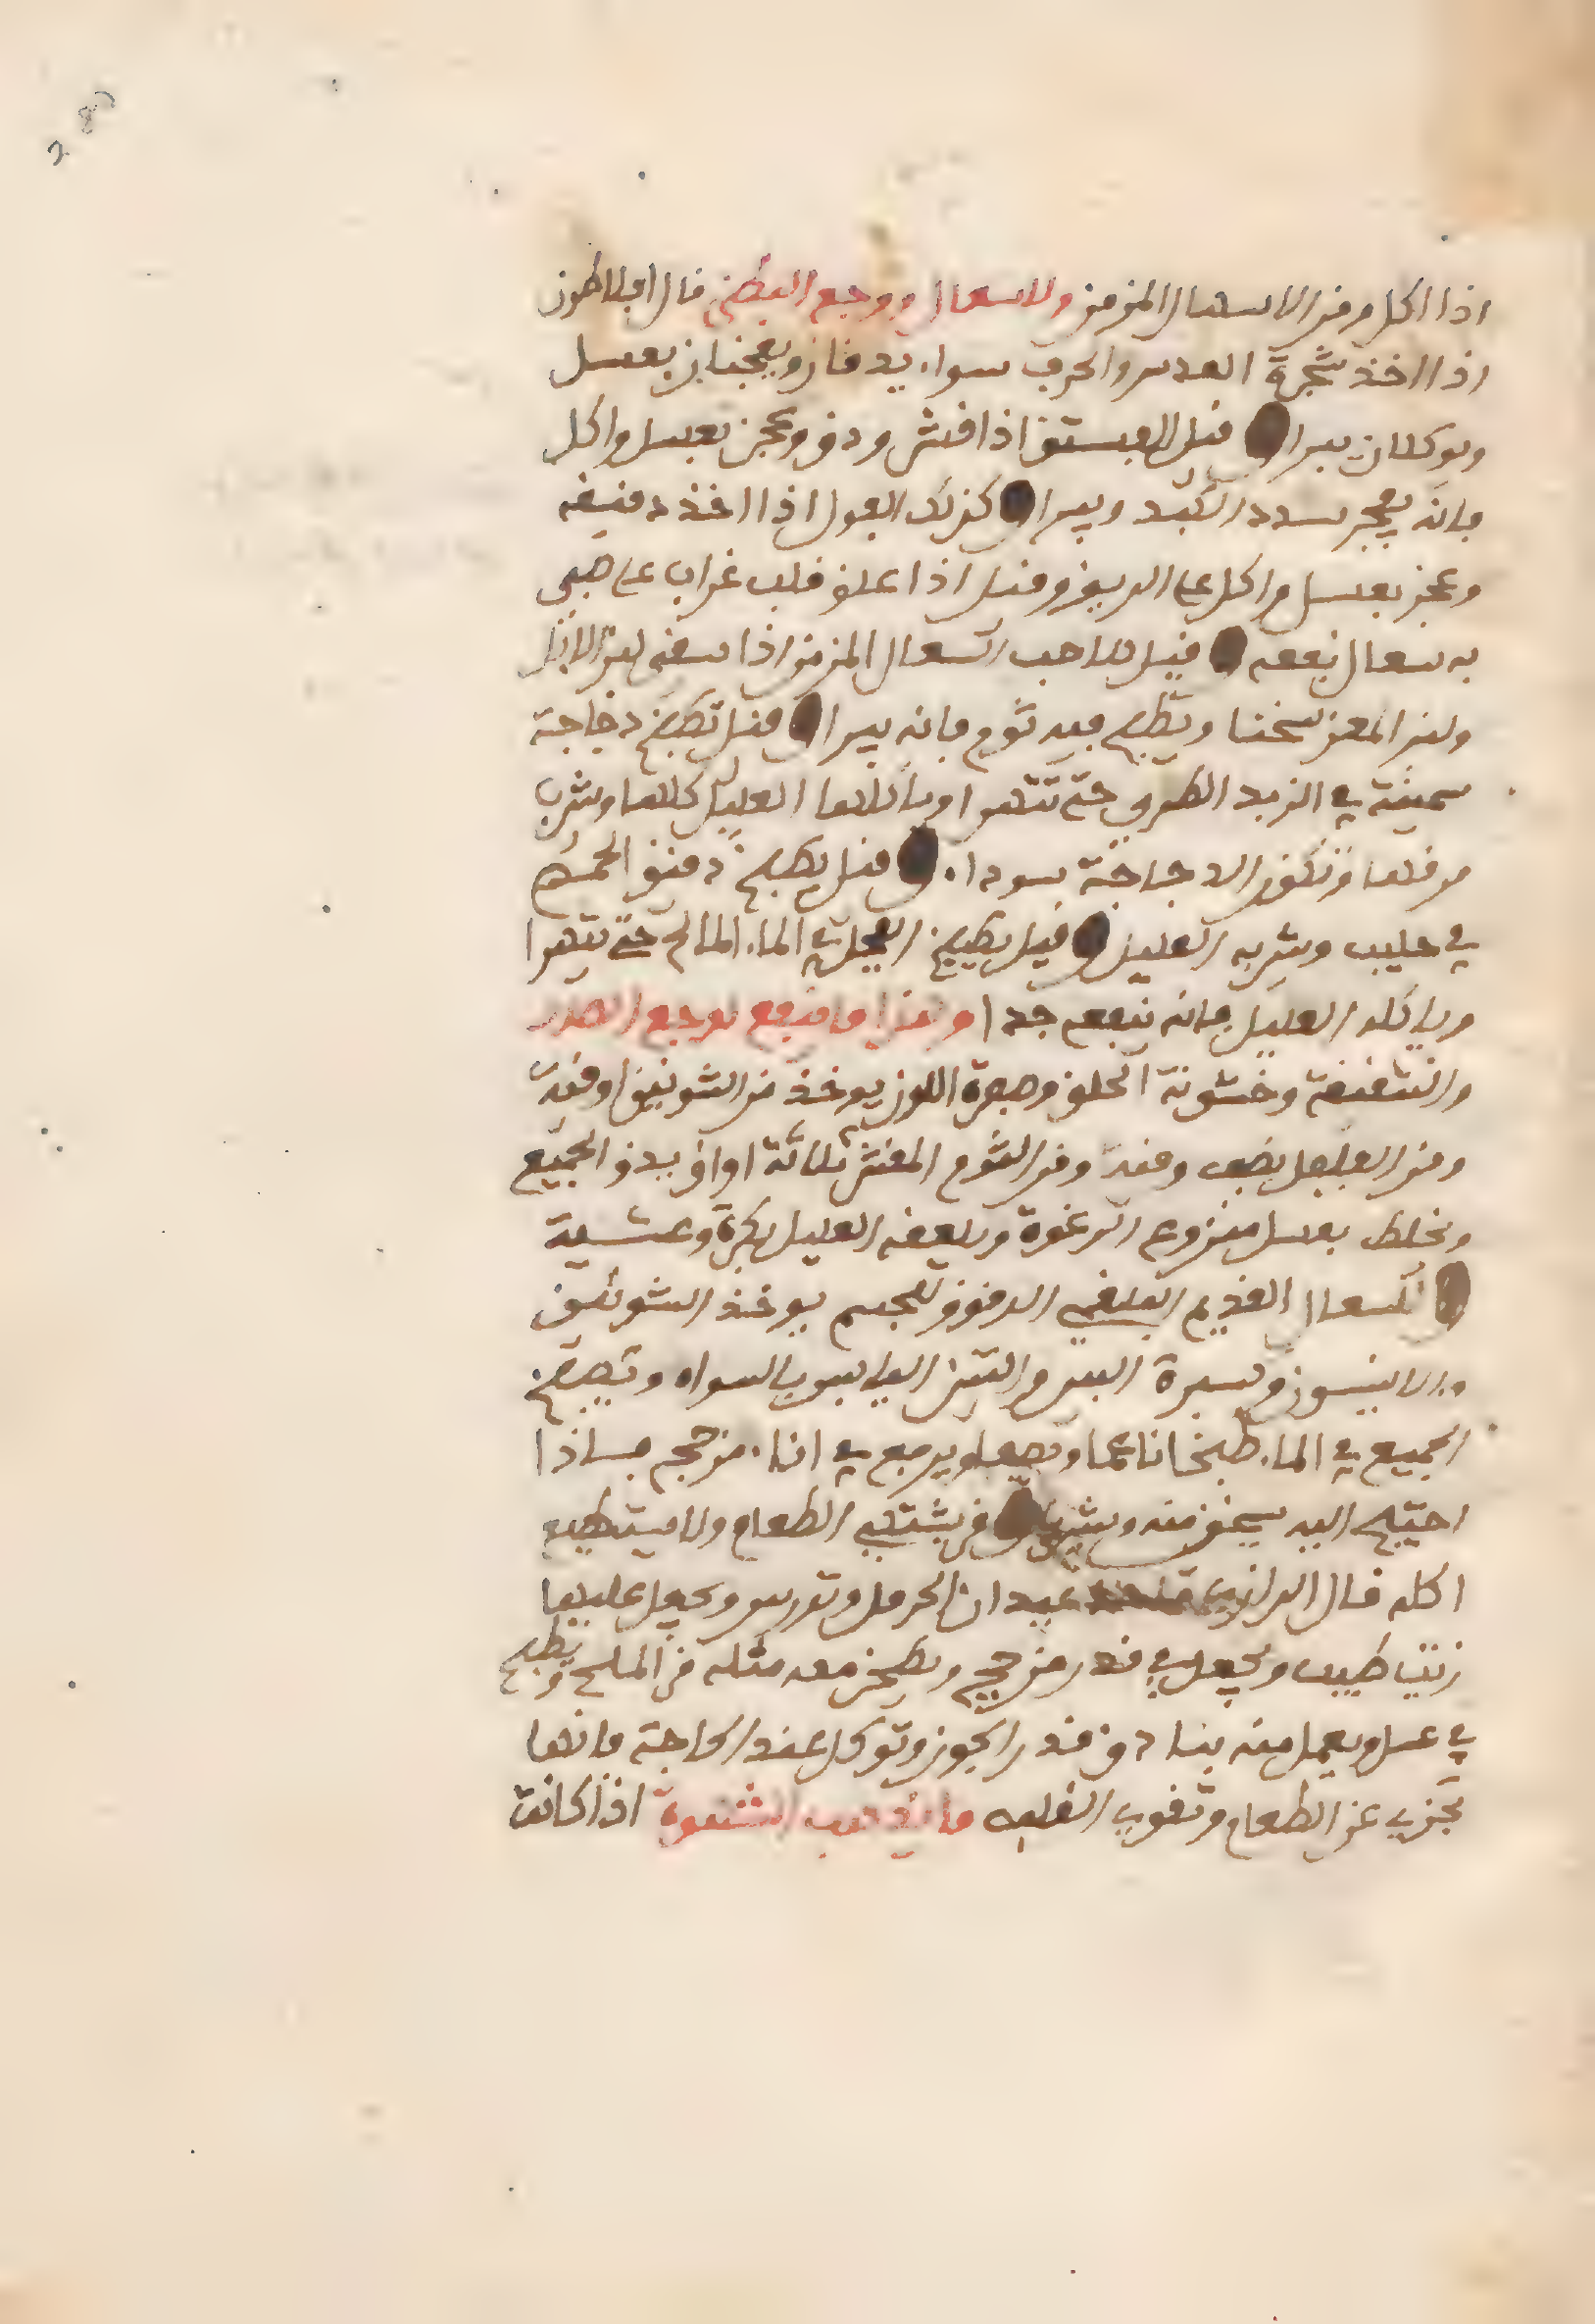 اذا اكل ومن الاسهال المزمن وللسعال ووجع البطن قال افلاطون
اذا اخذ شجرة العدس والحرف سواء يدقان ويعجنان بعسل
ويوكلان يبرا قيل الفستق اذا قشر ودق وعجن بعسل واكل
فانه يفجر سدد الكبد ويبرا كذلك الفول اذا اخذ دقيقه
وعجن بعسل واكل على الريق وقيل اذا علق قلب غراب على صبي
به سعال نفعه قيل لصاحب السعال المزمن اذا سقي لبن الابل
ولبن المعز سخنا ويطبخ فيه ثوم فانه يبرا قيل تطبخ دجاجة
سمينة في الزبد الطري حتى تتهرا وياكلها العليل كلها ويشرب
مرقها وتكون الدجاجة سوداء قيل يطبخ دقيق الحمص
في حليب ويشربه العليل قيل يطبخ الفجل في الماء المالح حتى يتهرا
وياكله العليل فانه ينفعه جدا وهذا ما ينفع لوجع الصدر
والشقيقة وخشونة الحلق وصفرة اللون يوخذ من الشونيز اوقية
ومن الفلفل نصف وقية ومن الثوم المقشر ثلاثة اواق يدق الجميع
ويخلط بعسل منزوع الرغوة ويلعقه العليل بكرة وعشية
السعال القديم البلغمي المرقوق للجسم يوخذ الشونيز
والانيسون وكسبرة البير والتين اليابس بالسواء ويطبخ
الجميع في الماء طبخا ناعما ويصفى ويرفع في اناء من حجم فاذا
احتيج اليه يسخن منه ويشرب من يشتكي الطعام ولا يستطيع
اكله قال الرازي عيدان الحرمل وتدرس ويجعل عليها
زيت طيب ويجعل في قدر من حجم ويطحن معه مثله من الملح ويطبخ
في عسل ويعمل منه بنادق قدر الجوز وتوكل عند الحاجة فانها
تجزي عن الطعام وتقوي القلب ما يذهب الشهوة اذا كانت